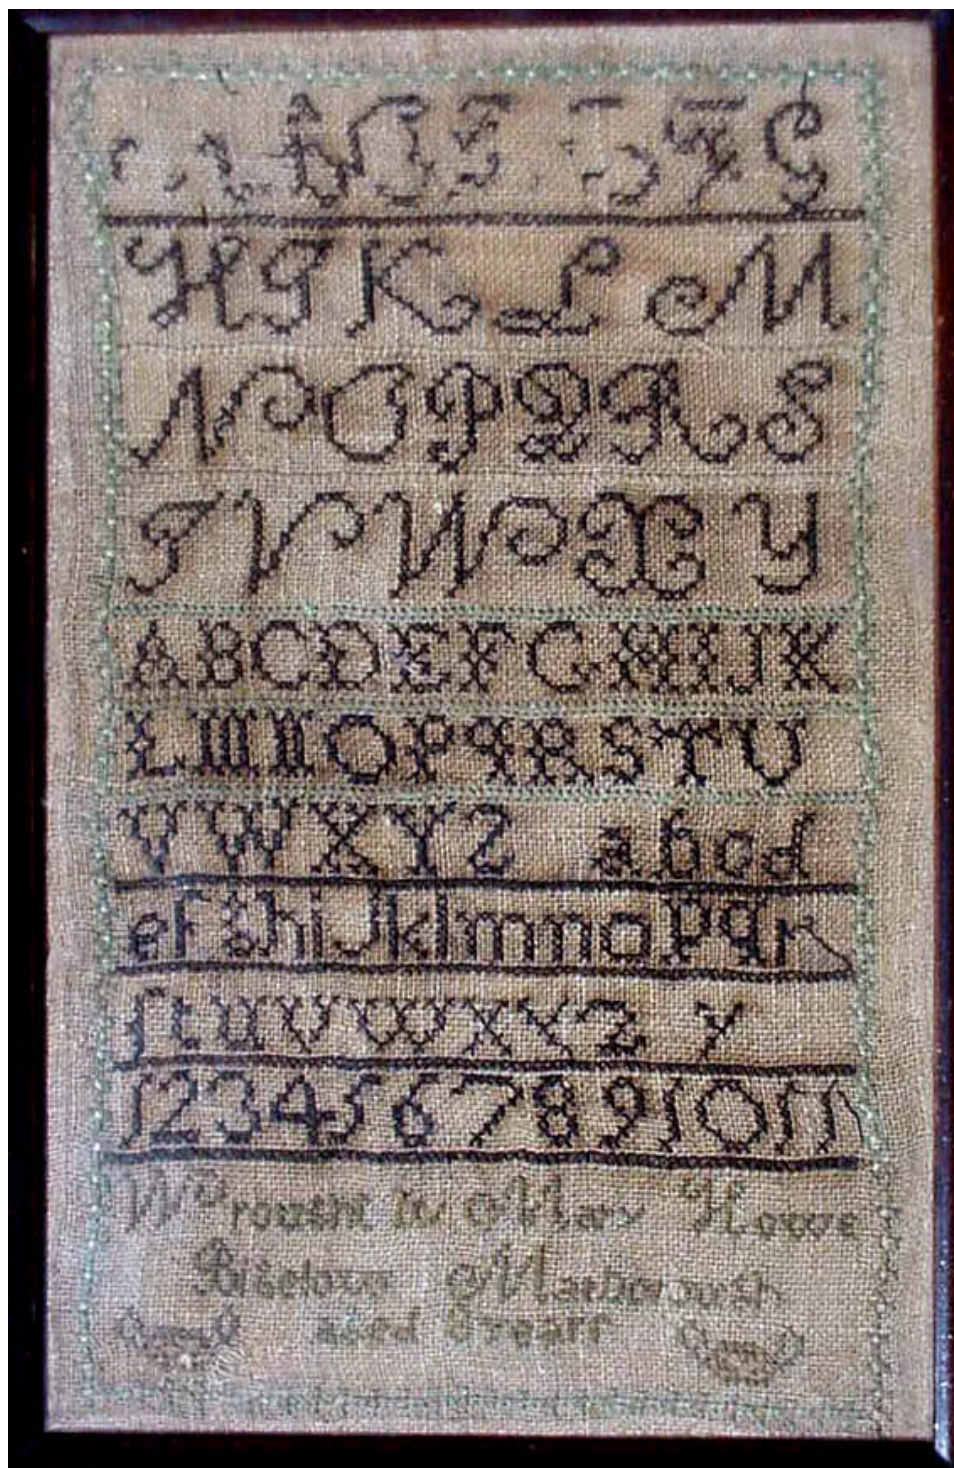 A B C D E F G
H I K L M
N O P Q R S
T V W X Y
A B C D E F G H I J K
L M N O P q R S T U
V W X Y Z a b c d
e f g h i J k l m n o p q r
ſ t u v w x y z y
1 2 3 4 5 6 7 8 9 1 0 1 1
Wrought by Mary Howe
Bigelow Marborough
aged 8 years